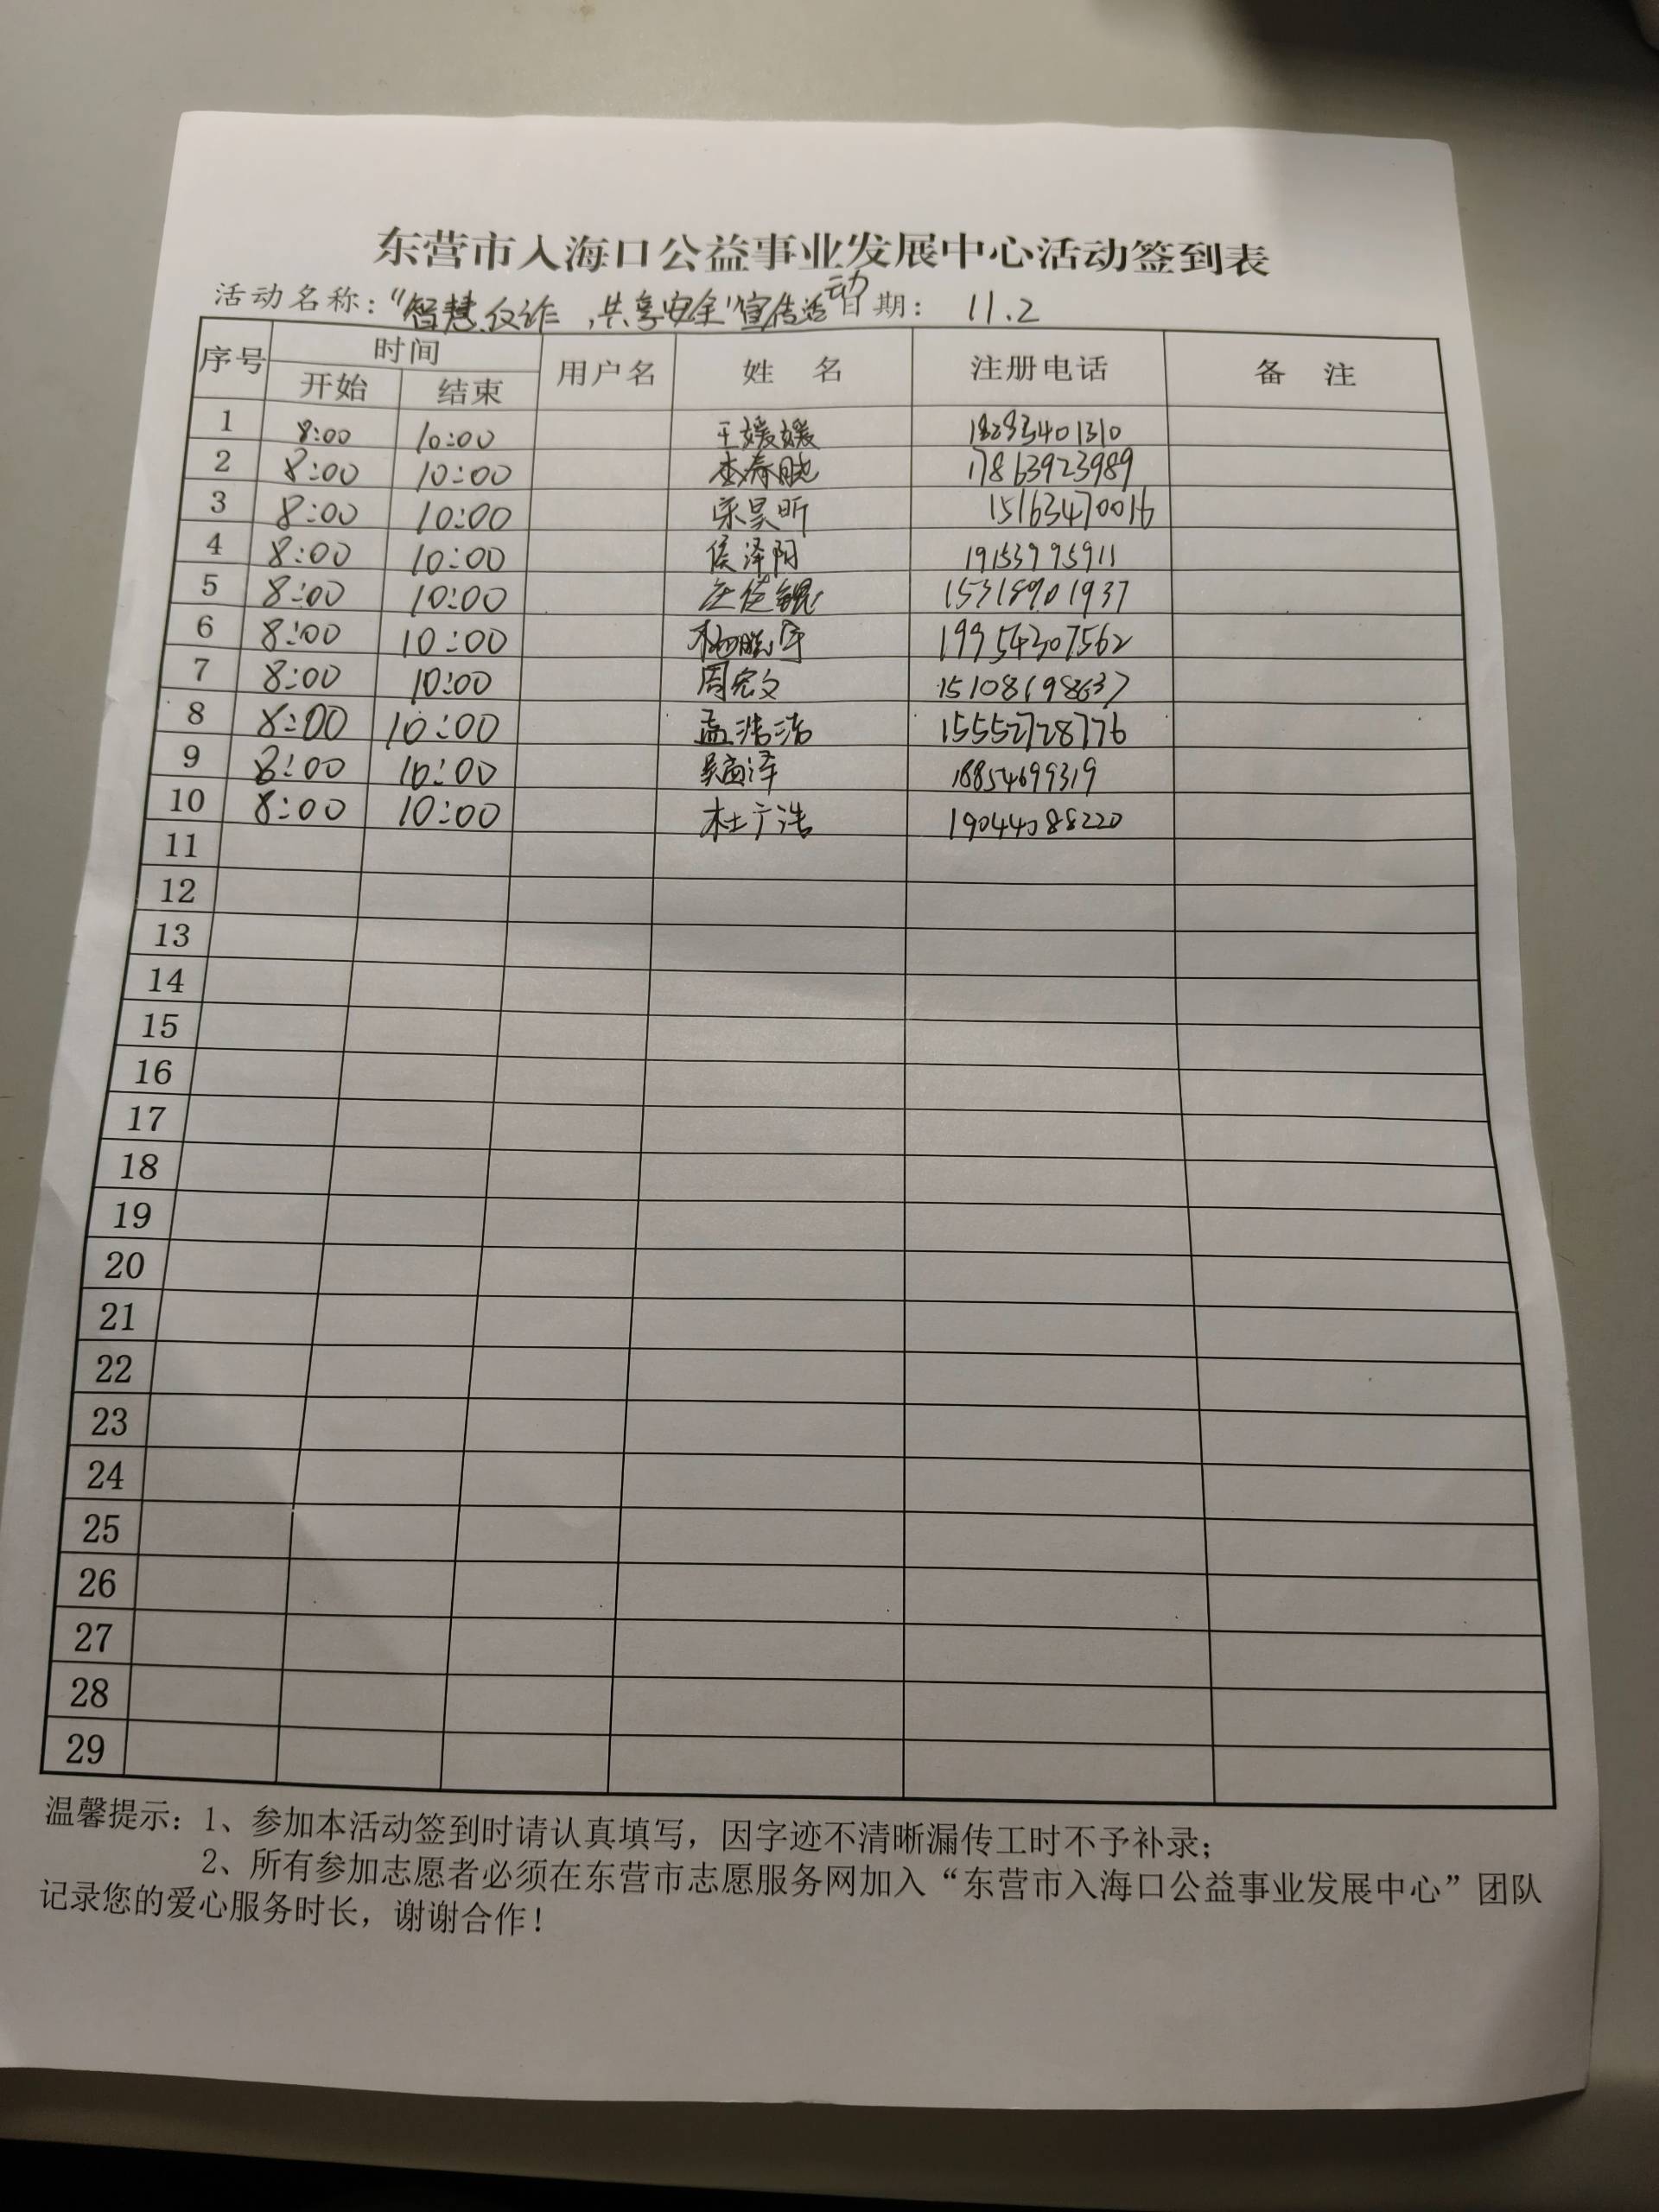 东营市入海口公益事业发展中心活动签到表
活动名称：“智慧反诈，共享安全”宣传活动 日期： 11.2
序号 时间 用户名 姓 名 注册电话 备 注
开始 结束
1 8:00 10:00 王媛媛 18283401310
2 8:00 10:00 李春晓 17863923989
3 8:00 10:00 宋昊昕 15163470016
4 8:00 10:00 侯泽阳 19153995911
5 8:00 10:00 15318901937
6 8:00 10:00 19954307562
7 8:00 10:00 周宏文 15108698637
8 8:00 10:00 孟浩浩 15552728776
9 8:00 10:00 18854699319
10 8:00 10:00 杜广浩 19044088220
11
12
13
14
15
16
17
18
19
20
21
22
23
24
25
26
27
28
29
温馨提示：1、参加本活动签到时请认真填写，因字迹不清晰漏传工时不予补录；
2、所有参加志愿者必须在东营市志愿服务网加入“东营市入海口公益事业发展中心”团队
记录您的爱心服务时长，谢谢合作！